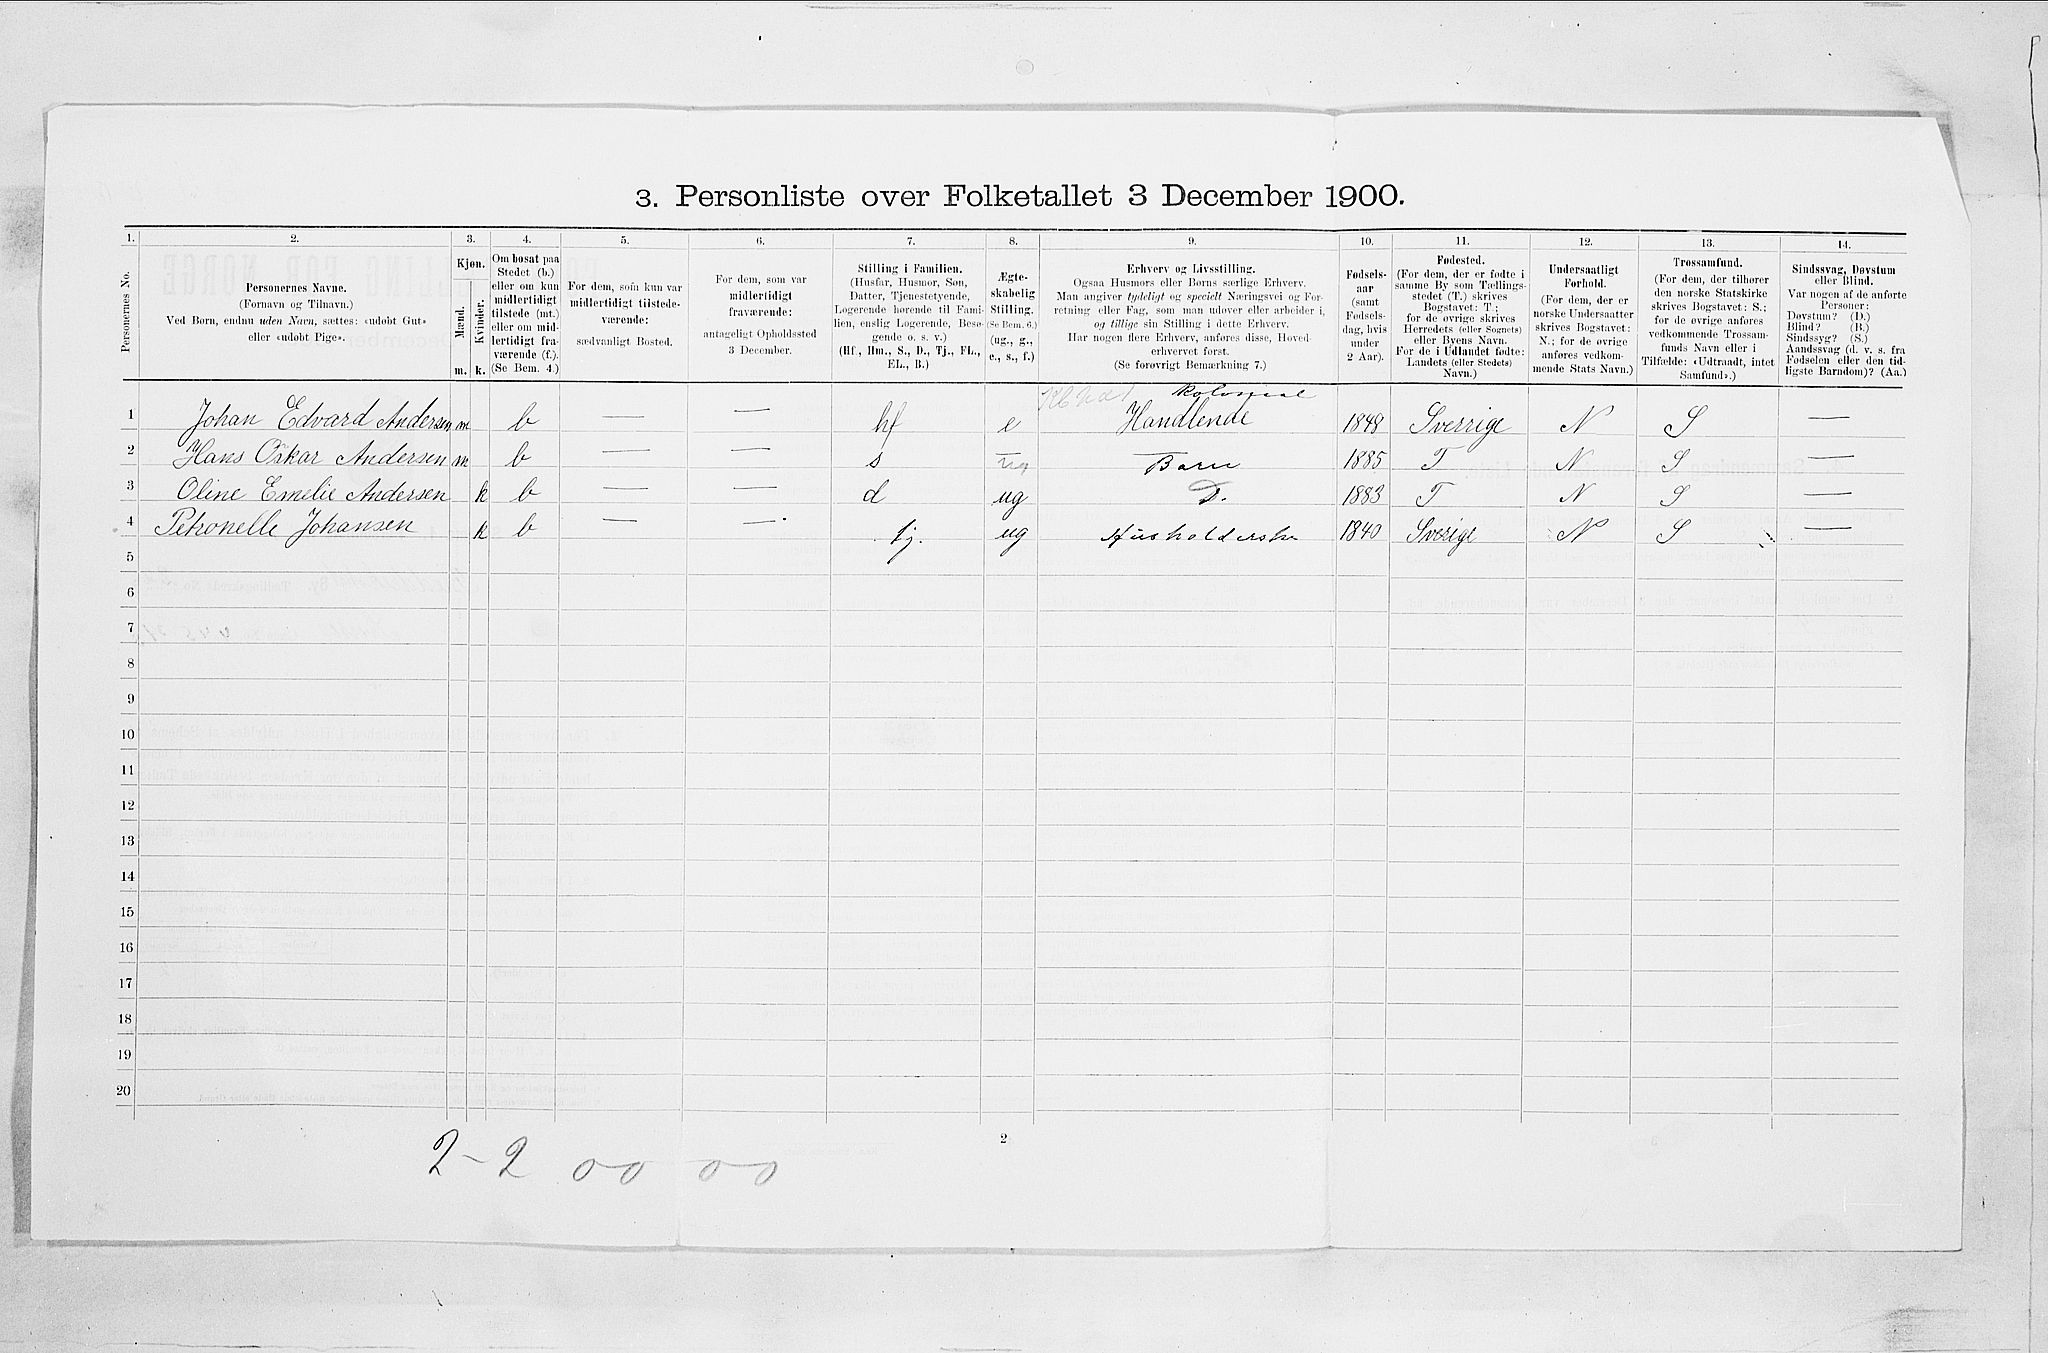 3. Personliste over Folketallet 3 December 1900.
1. 2. 3. 4. 5. 6. 7. 8. 9. 10. 11. 12. 13. 14.
Personernes No.
Personernes Navne.
(Fornavn og Tilnavn.)
Ved Børn, endnu uden Navn, sættes: «udøbt Gut»
eller «udøbt Pige».
Kjøn.
Mænd.
Kvinder.
m. k.
Om bosat paa
Stedet (b.)
eller om kun
midlertidigt
tilstede (mt.)
eller om mid-
lertidigt fra-
værende (f.).
(Se Bem. 4.)
For dem, som kun var
midlertidigt tilstede-
værende:
sædvanligt Bosted.
For dem, som var
midlertidigt
fraværende:
antageligt Opholdssted
3 December.
Stilling i Familien.
(Husfar, Husmor, Søn,
Datter, Tjenestetyende,
Logerende hørende til Fami-
lien, enslig Logerende, Besø-
gende o. s. v.)
(Hf., Hm., S., D., Tj., FL.,
EL., B.)
Ægte-
skabelig
Stilling.
(Se Bem. 6.)
(ug., g.,
e., s., f.)
Erhverv og Livsstilling.
Ogsaa Husmors eller Børns særlige Erhverv.
Man angiver tydeligt og specielt Næringsvei og For-
retning eller Fag, som man udøver eller arbeider i,
og tillige sin Stilling i dette Erhverv.
Har nogen flere Erhverv, anføres disse, Hoved-
erhvervet først.
(Se forøvrigt Bemærkning 7.)
Fødsels-
aar
(samt
Fødsels-
dag, hvis
under
2 Aar).
Fødested.
(For dem, der er fødte i
samme By som Tællings-
stedet (T.) skrives
Bogstavet: T.;
for de øvrige skrives
Herredets (eller Sognets)
eller Byens Navn.
For de i Udlandet fødte:
Landets (eller Stedets)
Navn.)
Undersaatligt
Forhold.
(For dem, der er
norske Undersaatter
skrives Bogstavet:
N.; for de øvrige
anføres vedkom-
mende Stats Navn.)
Trossamfund.
(For dem, der tilhører
den norske Statskirke
skrives Bogstavet: S.;
for de øvrige anføres
vedkommende Trossam-
funds Navn eller i
Tilfælde: «Udtraadt, intet
Samfund».)
Sindssvag, Døvstum
eller Blind.
Var nogen af de anførte
Personer:
Døvstum? (D.)
Blind? (B.)
Sindssyg? (S.)
Aandssvag (d. v. s. fra
Fødselen eller den tid-
ligste Barndom)? (Aa.)
Kolonial
1 Johan Edvard Andersen m b — — hf e Handlende 1848 Sverrige N S —
2 Hans Oskar Andersen m b — — s ug Barn 1885 T N S —
3 Oline Emelie Andersen k b — — d ug D. 1883 T N S —
4 Petronelle Johansen k b — — tj. ug Husholderske 1840 Sverige N S —
5
6
7
8
9
10
11
12
13
14
15
16
17
18
19
20
2
2-2 00 00